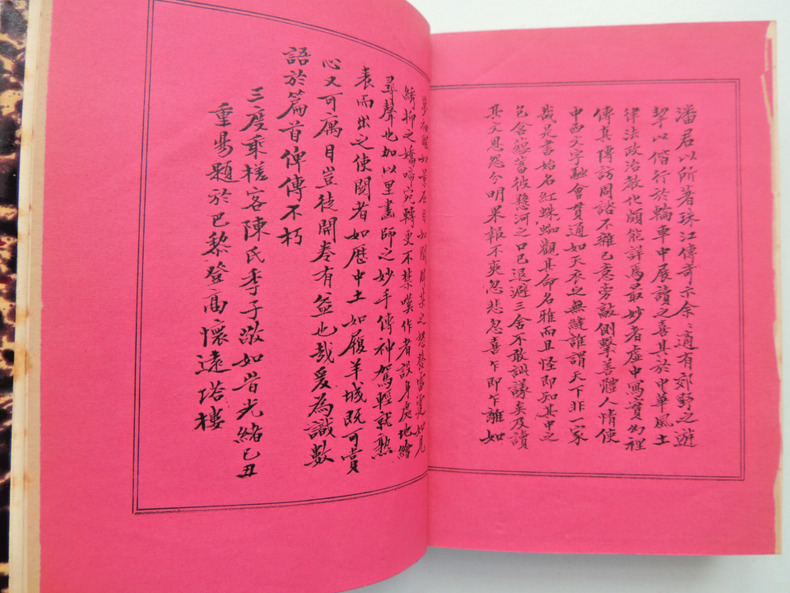 潘君以所著珠江傳奇示余〻適有郊野之遊
挈以偕行於輪車中展讀之喜其於中華風土
律法政治教化頗能詳焉最妙者虛中寫實 裡
傳真傳訪周諮不雜己意旁敲側擊善體人情使
中西文字融會貫通如天衣之無縫誰謂天下非一家
哉是書始名紅蜘蛛觀其命名雅而且怪即知其中之
包含蘊蓄彼懸河之口已退避三舍不敢 議矣及讀
其文恩怨分明果報不爽忽悲忽喜乍即乍離如
如 之怒發雷霆如見
柳之嬌啼宛轉更不禁嘆作者設身處地繪
尋聲也加以里畫師之妙手傳神駕輕就熟
表而出之使閱者如歷中土如履羊城既可賞
心又可厲目豈徒開卷有益也哉爰為識數
語於篇首俾傳不朽
三度乘槎客陳氏季子敬如 光緒己丑
重昜題於巴黎登高懷遠塔樓